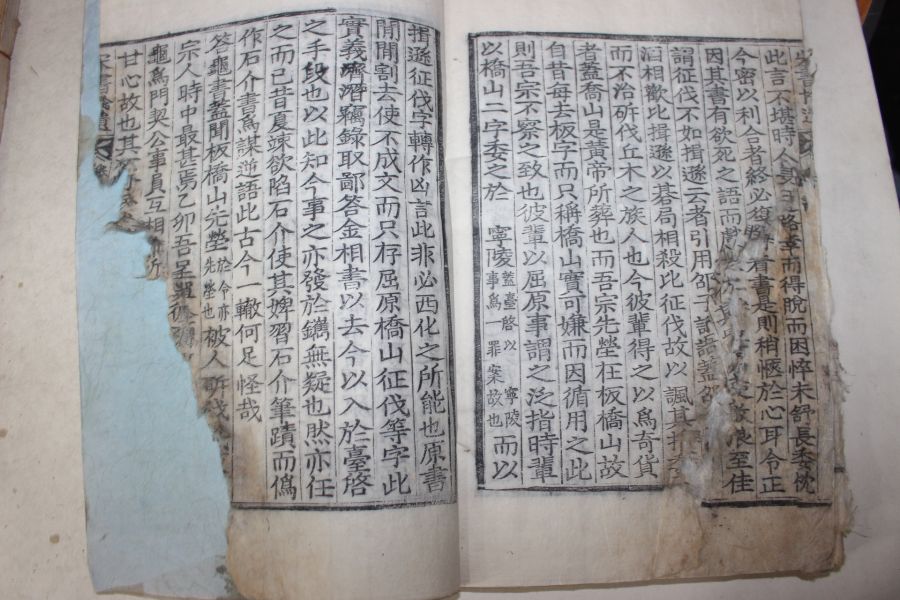 此言不堪時人 略幸而得脫而困悴未舒長委枕
今密以利合者終必復 看書是則稍愜於心耳令正
因其書有欲死之語而 浪至佳
謂征伐不如揖遜云者引用邵子詩語蓋邵
酒相歡比揖遜以碁局相殺比征伐故以諷其
而不治斫伐丘木之族人也今彼輩得之以爲奇貨
者蓋喬山是黃帝所葬也而吾宗先塋在板橋山故
自昔每去板字而只稱橋山實可嫌而因循用之此
則吾宗不察之致也彼輩以屈原事謂之泛指時輩
以橋山二字委之於 寧陵蓋臺啓以寧陵事爲一罪案故也而以
揖遜征伐字轉作凶言此非必西化之所能也原書
閒閒割去使不成文而只存屈原橋山征伐等字此
實義濟潛竊錄取鄙答金相書以去今以入於臺啓
之手段也以此知今事之亦發於鑴無疑也然亦任
之而已昔夏竦欲陷石介使其婢習石介筆蹟而僞
作石介書爲謀逆語此古今一轍何足怪哉
答龜書蓋聞板橋山先塋於今亦先塋也被人斫伐
宗人時中最甚焉乙卯吾呈
龜爲門契公事員互相
甘心故也其